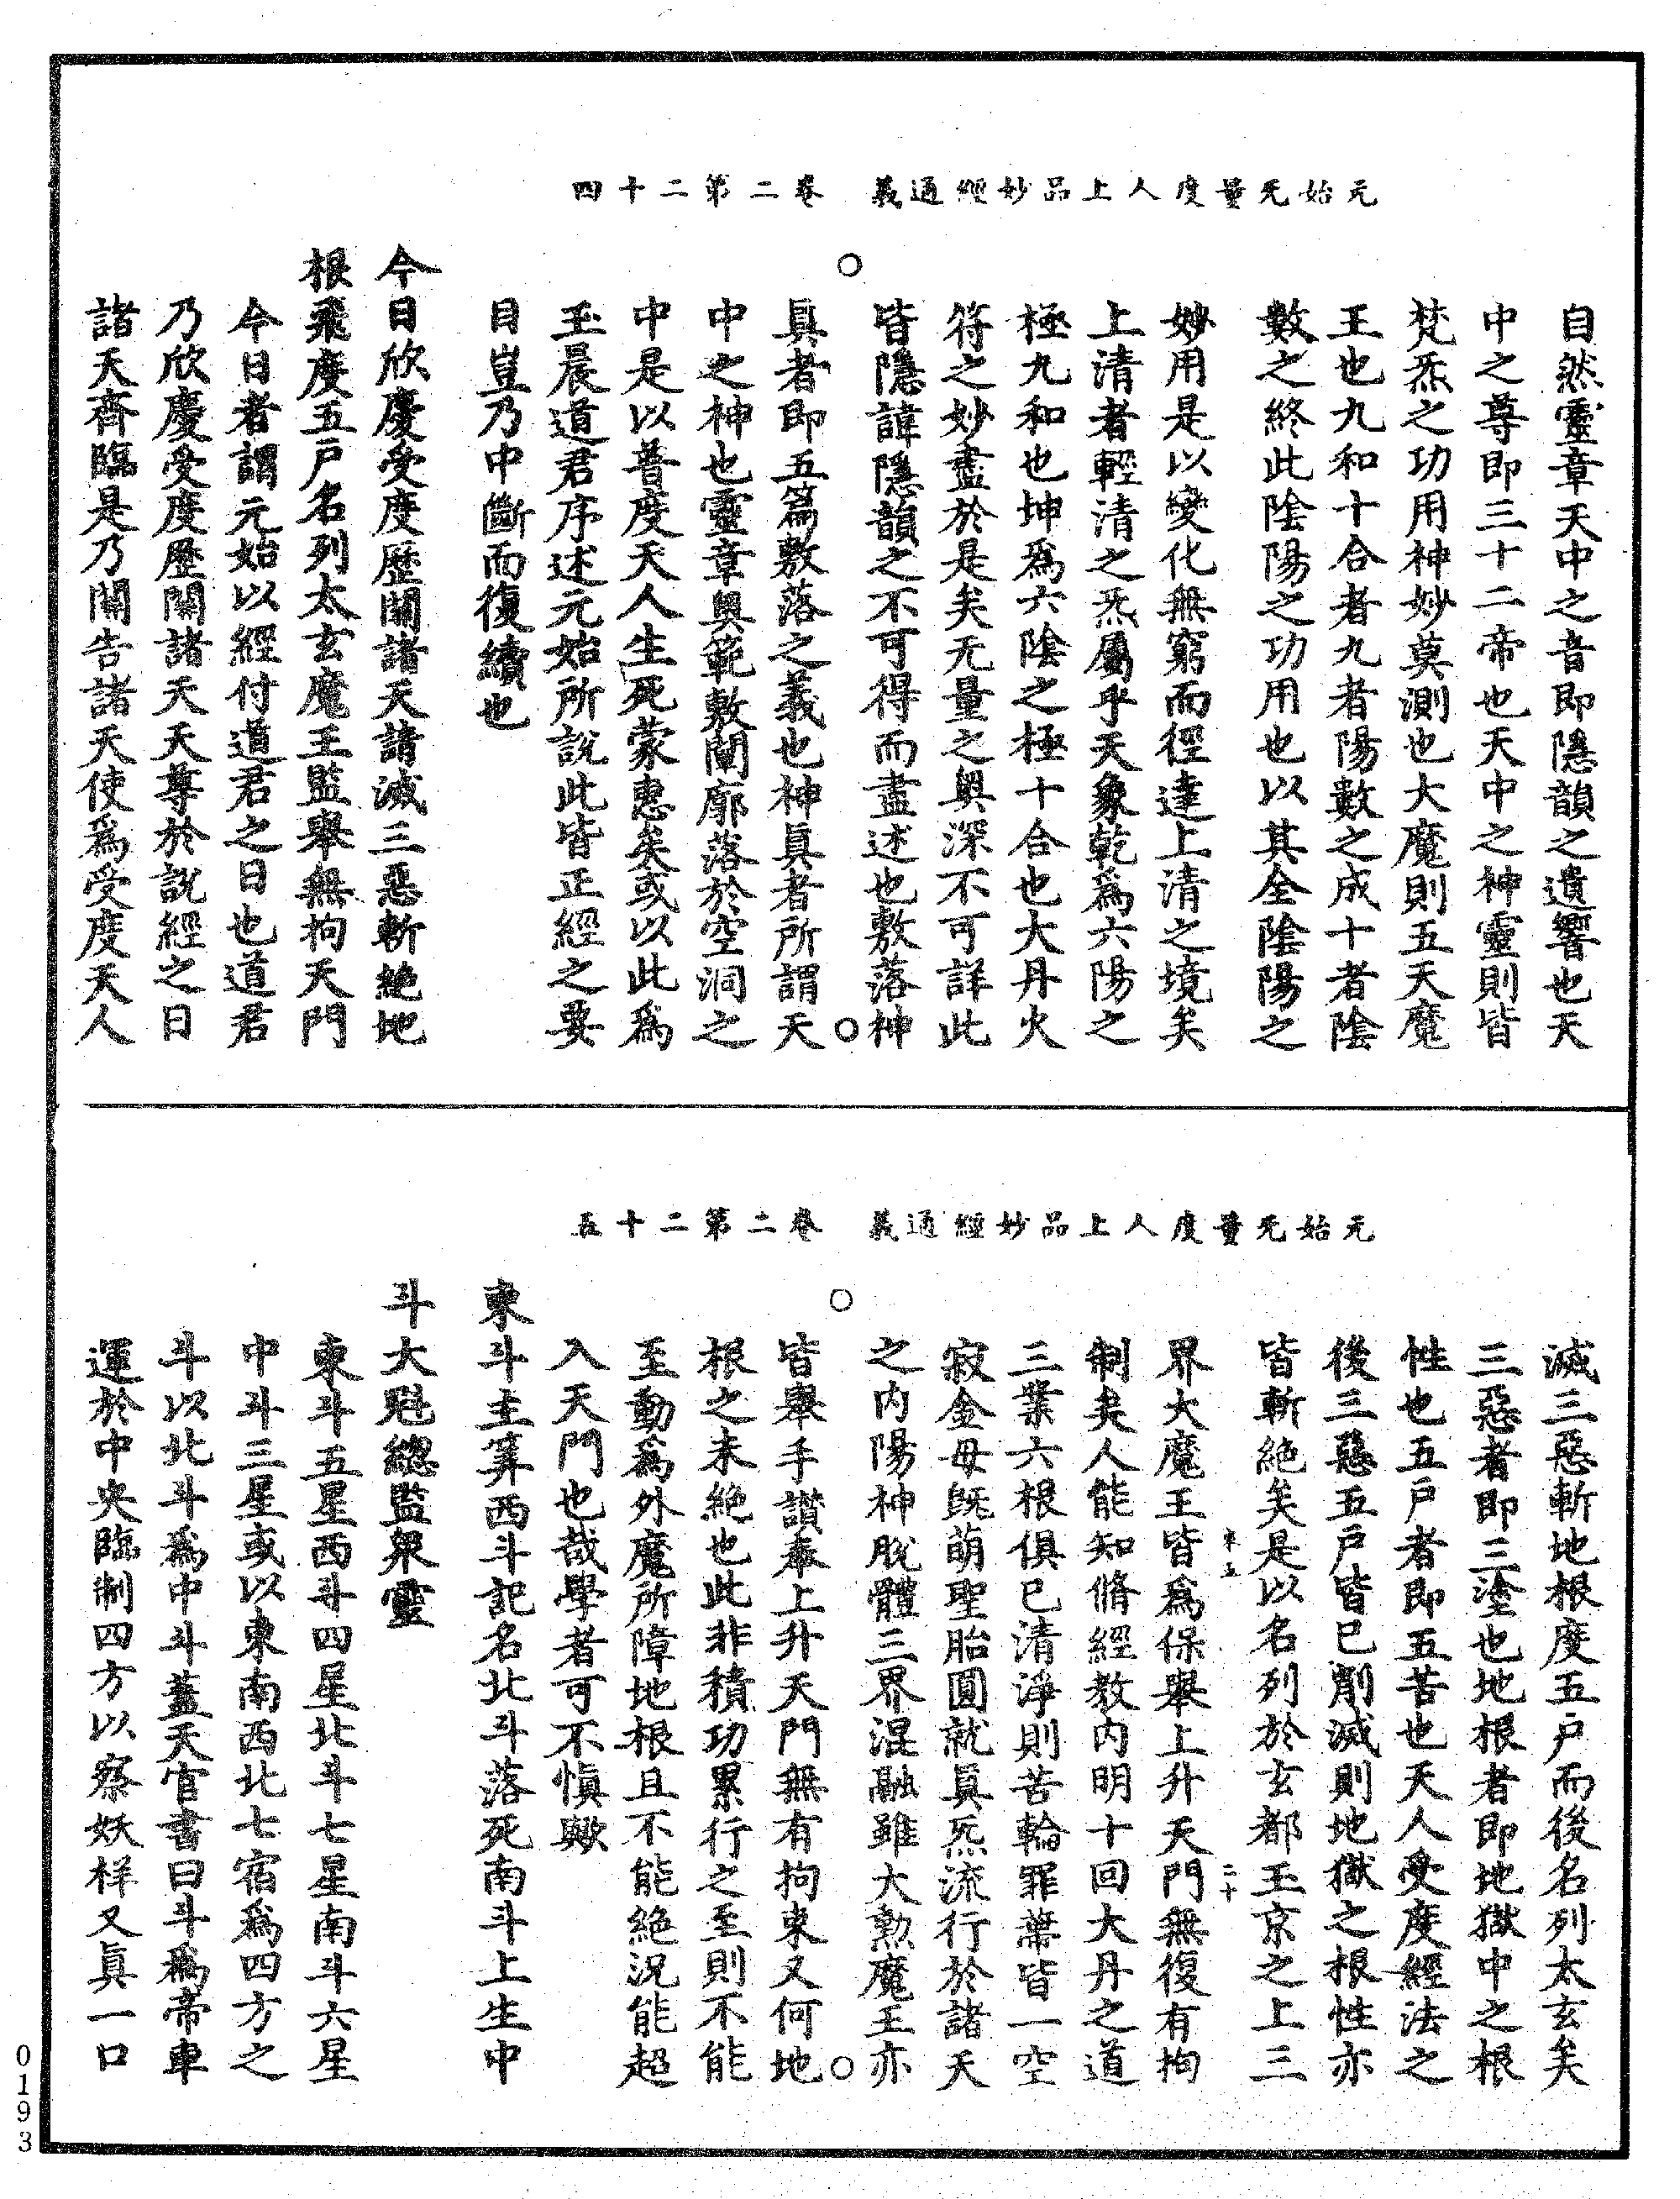 元始无量度人上品妙經通義　卷二第二十四
自然靈章天中之音即隱韻之遺響也天
中之尊即三十二帝也天中之神靈則皆
梵炁之功用神妙莫測也大魔則五天魔
王也九和十合者九者陽數之成十者陰
數之終此陰陽之功用也以其全陰陽之
妙用是以變化無窮而徑達上清之境矣
上清者輕清之炁屬乎天象乾爲六陽之
極九和也坤爲六陰之極十合也大丹火
符之妙盡於是矣无量之奥深不可詳此
皆隱諱隱韻之不可得而盡述也敷落神
真者即五篇敷落之義也神真者所謂天
中之神也靈章奥範敷闡廓落於空洞之
中是以普度天人生死蒙惠矣或以此爲
玉晨道君序述元始所說此皆正經之要
目豈乃中斷而復續也
今日欣慶受度歷關諸天請滅三惡斬絶地
根飛度五戶名列太玄魔王監舉無拘天門
今日者謂元始以經付道君之日也道君
乃欣慶受度歷關諸天天尊於説經之日
諸天齊臨是乃關告諸天使爲受度天人
元始无量度人上品妙經通義　卷二第二十五
滅三惡斬地根度五戶而後名列太玄矣
三惡者即三塗也地根者即地獄中之根
性也五戶者即五苦也天人受度經法之
後三惡五戶皆已削滅則地獄之根性亦
皆斬絶矣是以名列於玄都玉京之上三
界大魔王皆爲保舉上升天門無復有拘
制矣人能知脩經教内明十回大丹之道
三業六根俱已清淨則苦輪罪業皆一空
寂金母既萌聖胎圓就真炁流行於諸天
之内陽神脫體三界混融雖大勲魔王亦
皆舉手讃奉上升天門無有拘束又何地
根之未絶也此非積功累行之至則不能
至動爲外魔所障地根且不能絶況能超
入天門也哉學者可不慎歟
東斗主筭西斗記名北斗落死南斗上生中
斗大魁總監衆靈
東斗五星西斗四星北斗七星南斗六星
中斗三星或以東南西北七宿爲四方之
斗以北斗爲中斗蓋天官書曰斗爲帝車
運於中央臨制四方以察妖样又真一口
0193